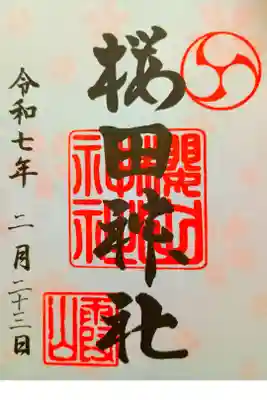 桜田神社
令和七年 二月二十三日
櫻田神社
霞山